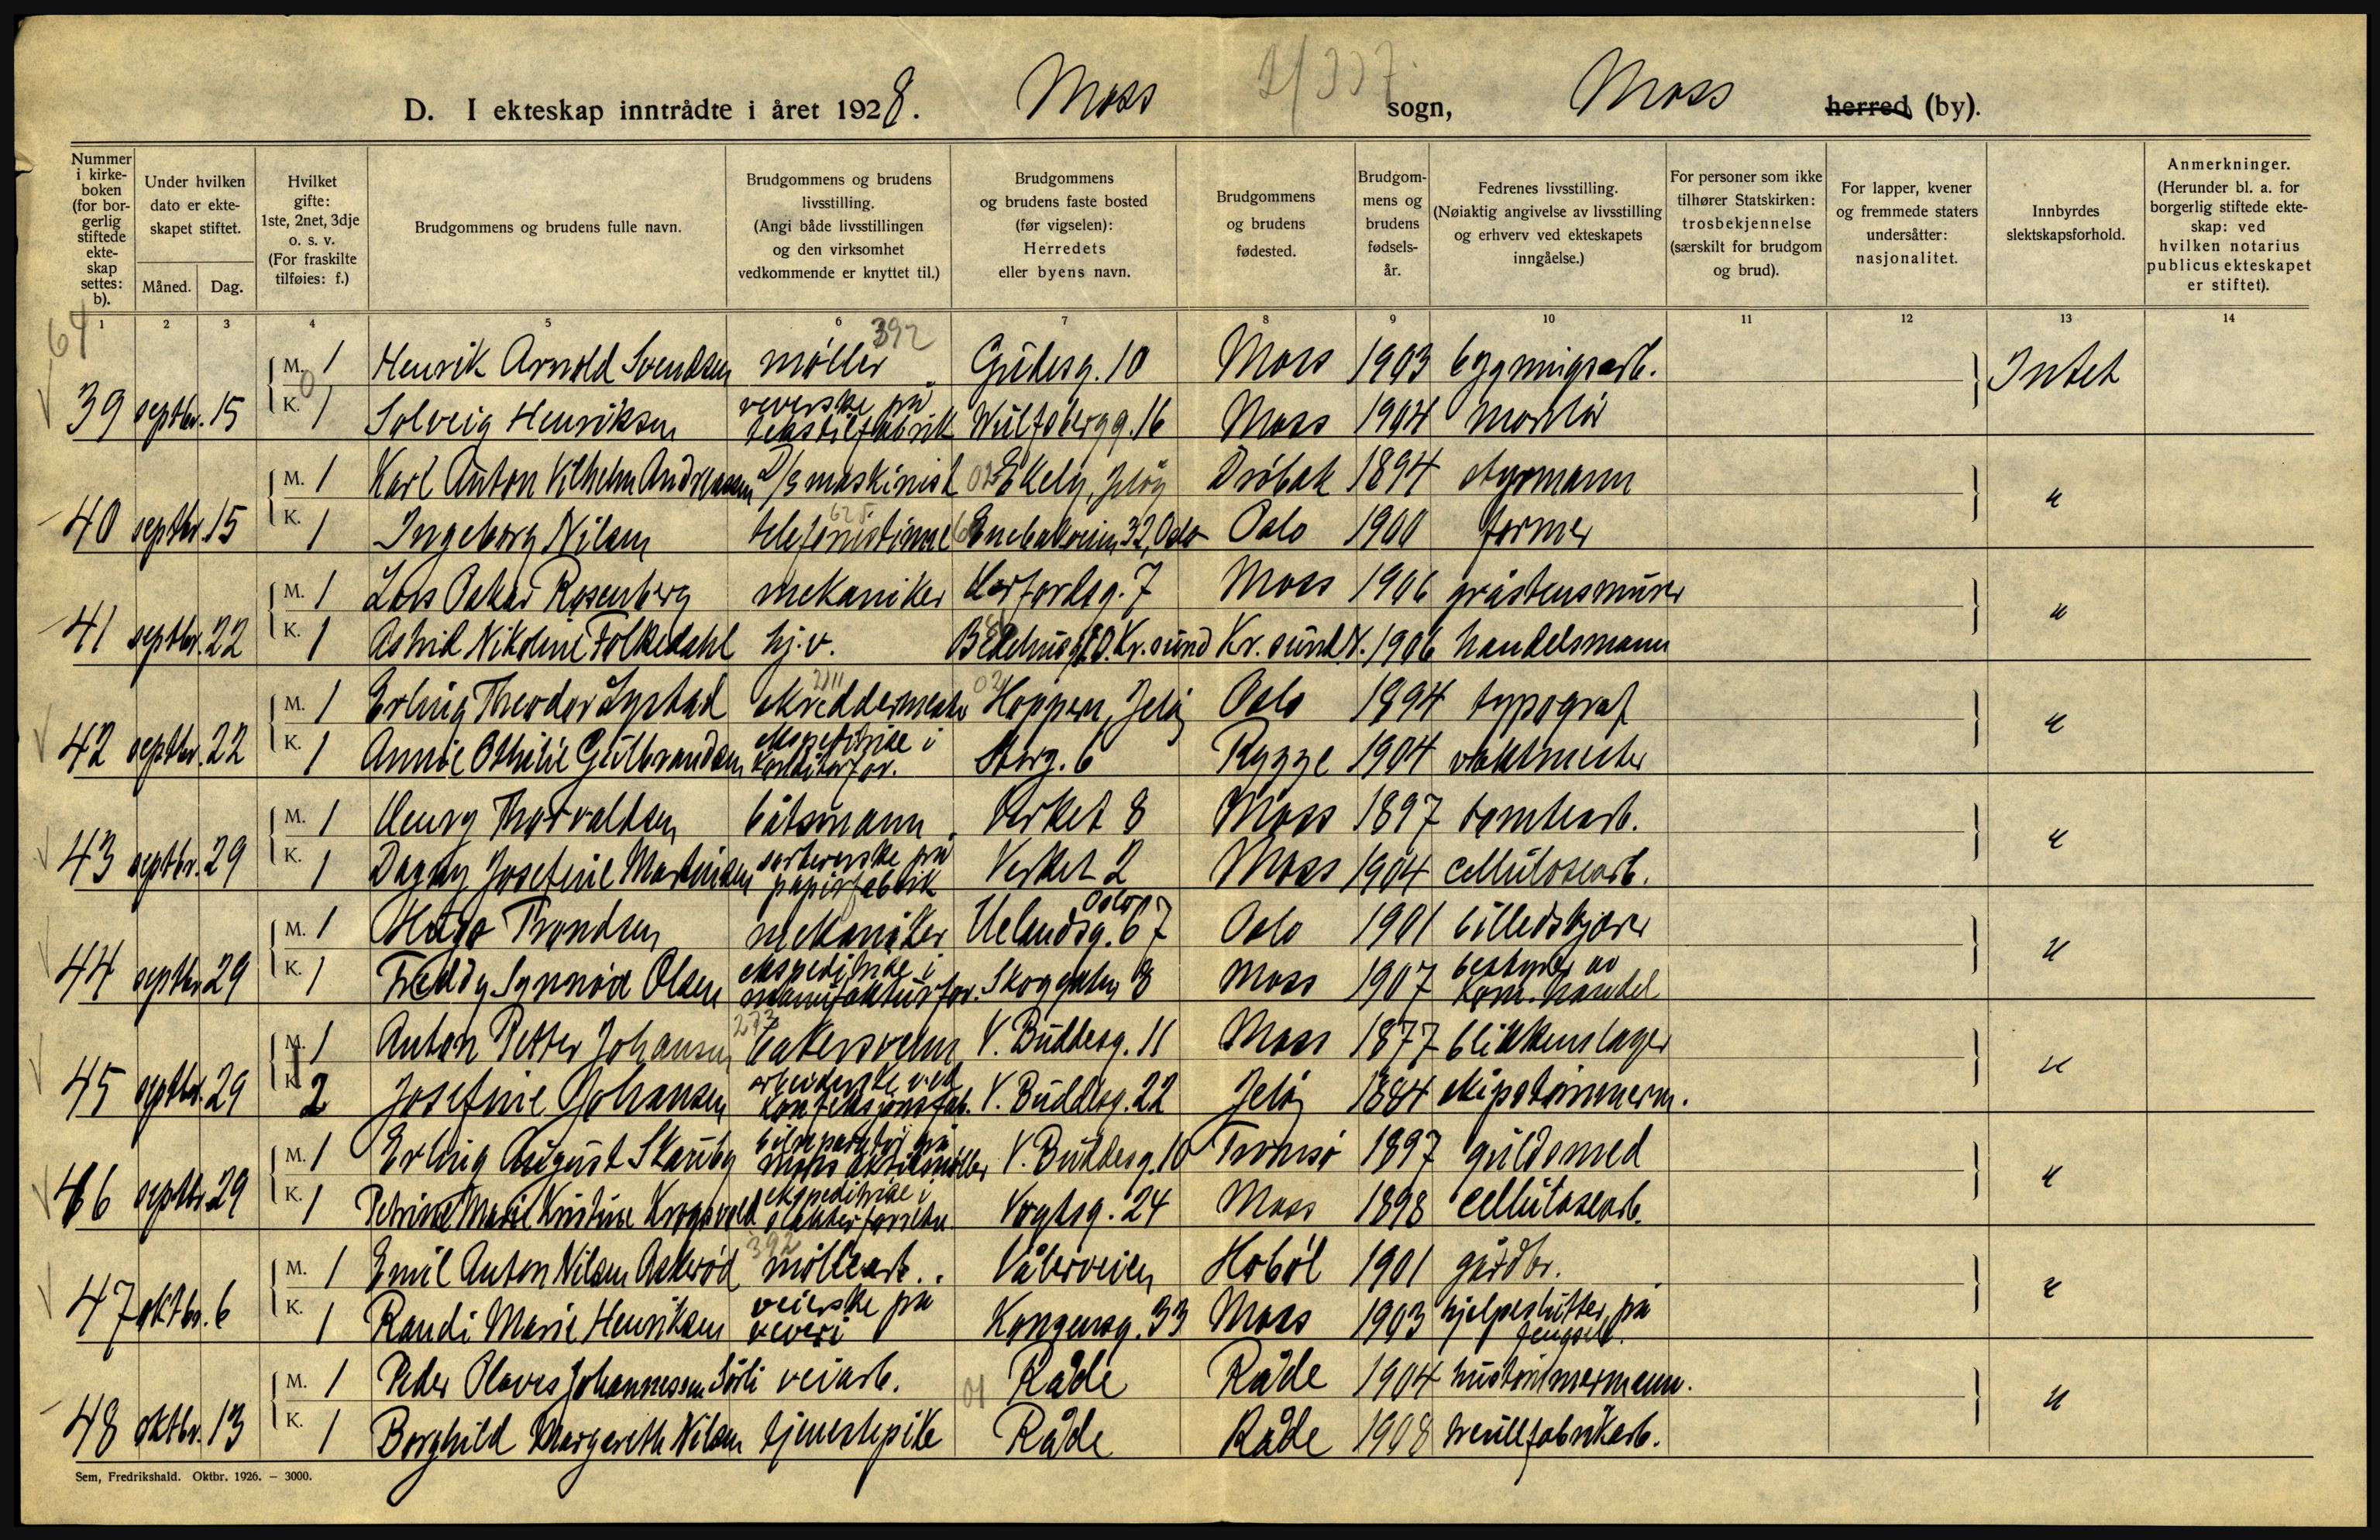 D. I ekteskap inntrådte i året 1928. Moss sogn, Moss herred (by).
Nummer i kirkeboken (for borgerlig stiftede ekteskap settes: b).
Under hvilken dato er ekteskapet stiftet.
Måned. Dag.
Hvilket gifte: 1ste, 2net, 3dje o. s. v. (For fraskilte tilføies: f.)
Brudgommens og brudens fulle navn.
Brudgommens og brudens livsstilling. (Angi både livsstillingen og den virksomhet vedkommende er knyttet til.)
Brudgommens og brudens faste bosted (før vigselen): Herredets eller byens navn.
Brudgommens og brudens fødested.
Brudgommens og brudens fødselsår.
Fedrenes livsstilling. (Nøiaktig angivelse av livsstilling og erhverv ved ekteskapets inngåelse.)
For personer som ikke tilhører Statskirken: trosbekjennelse (særskilt for brudgom og brud).
For lapper, kvener og fremmede staters undersåtter: nasjonalitet.
Innbyrdes slektskapsforhold.
Anmerkninger. (Herunder bl. a. for borgerlig stiftede ekteskap: ved hvilken notarius publicus ekteskapet er stiftet).
1 2 3 4 5 6 7 8 9 10 11 12 13 14
64 392
M. 1 Henrik Arnold Svendsen møller Gudesg. 10 Moss 1903 bygningsarb. Intet
39 septbr. 15 K. 1 Solveig Henriksen veverske på tekstilfabrik Wulfsbergg. 16 Moss 1904 montør
M. 1 Karl Anton Vilhelm Andreassen D/S maskinist Ekely, Jeløy Drøbak 1894 styrmann "
40 septbr. 15 K. 1 Ingeborg Nilsen telefonistinne Enebakveien 32, Oslo Oslo 1900 former
M. 1 Lars Oskar Rosenberg mekaniker 7 Moss 1906 gråstensmurer "
41 septbr. 22 K. 1 Astrid Nikoline Folkedahl hj.v. Kr.sund Kr.sund N. 1906 handelsmann
M. 1 Erling Theodor Lystad skreddermester Hoppern, Jeløy Oslo 1894 typograf "
42 septbr. 22 K. 1 Annie Othilie Gulbrandsen ekspeditrise i konditorfor. Storg. 6 Rygge 1904 vaktmester
M. 1 Henry Thorvaldsen båtsmann Verket 8 Moss 1897 tomtearb. "
43 septbr. 29 K. 1 Dagny Josefine Martinsen sorterske på papirfabrik Verket 2 Moss 1904 cellulosearb.
M. 1 Hugo Trondsen mekaniker Uelandsg. 67 Oslo Oslo 1901 billedskjærer "
44 septbr. 29 K. 1 Freddy Synnøve Olsen ekspeditrise i manufakturfor. Skoggaten 8 Moss 1907 bestyrer av kom. handel
M. 1 Anton Petter Johansen bakersvenn V. Buddesg. 11 Moss 1877 blikkenslager "
45 septbr. 29 K. 2 Josefine Johansen arbeiderske ved konfeksjonsfab. V. Buddesg. 22 Jeløy 1884 skipstømmerm.
M. 1 Erling August Skauby bilreparatør på Moss aktiemøller V. Buddesg. 10 Tromsø 1897 gullsmed "
46 septbr. 29 K. 1 Petrine Marie Kristine Krogsvold ekspeditrise i slakterforretn. Vogtsg. 24 Moss 1898 cellulosearb.
392
M. 1 Emil Anton Nilsen Askerød møllearb. Vålerveien Hobøl 1901 gårdbr. "
47 oktbr. 6 K. 1 Randi Marie Henriksen veverske på veveri Kongensg. 33 Moss 1903 hjelpeslutter på fengsel.
M. 1 Peder Olaves Johannessen Sørli veiarb. Råde Råde 1904 hustømmermann. "
48 oktbr. 13 K. 1 Borghild Margareth Nilsen tjenestepike Råde Råde 1908 treullfabrikarb.
Sem, Fredrikshald. Oktbr. 1926. — 3000.